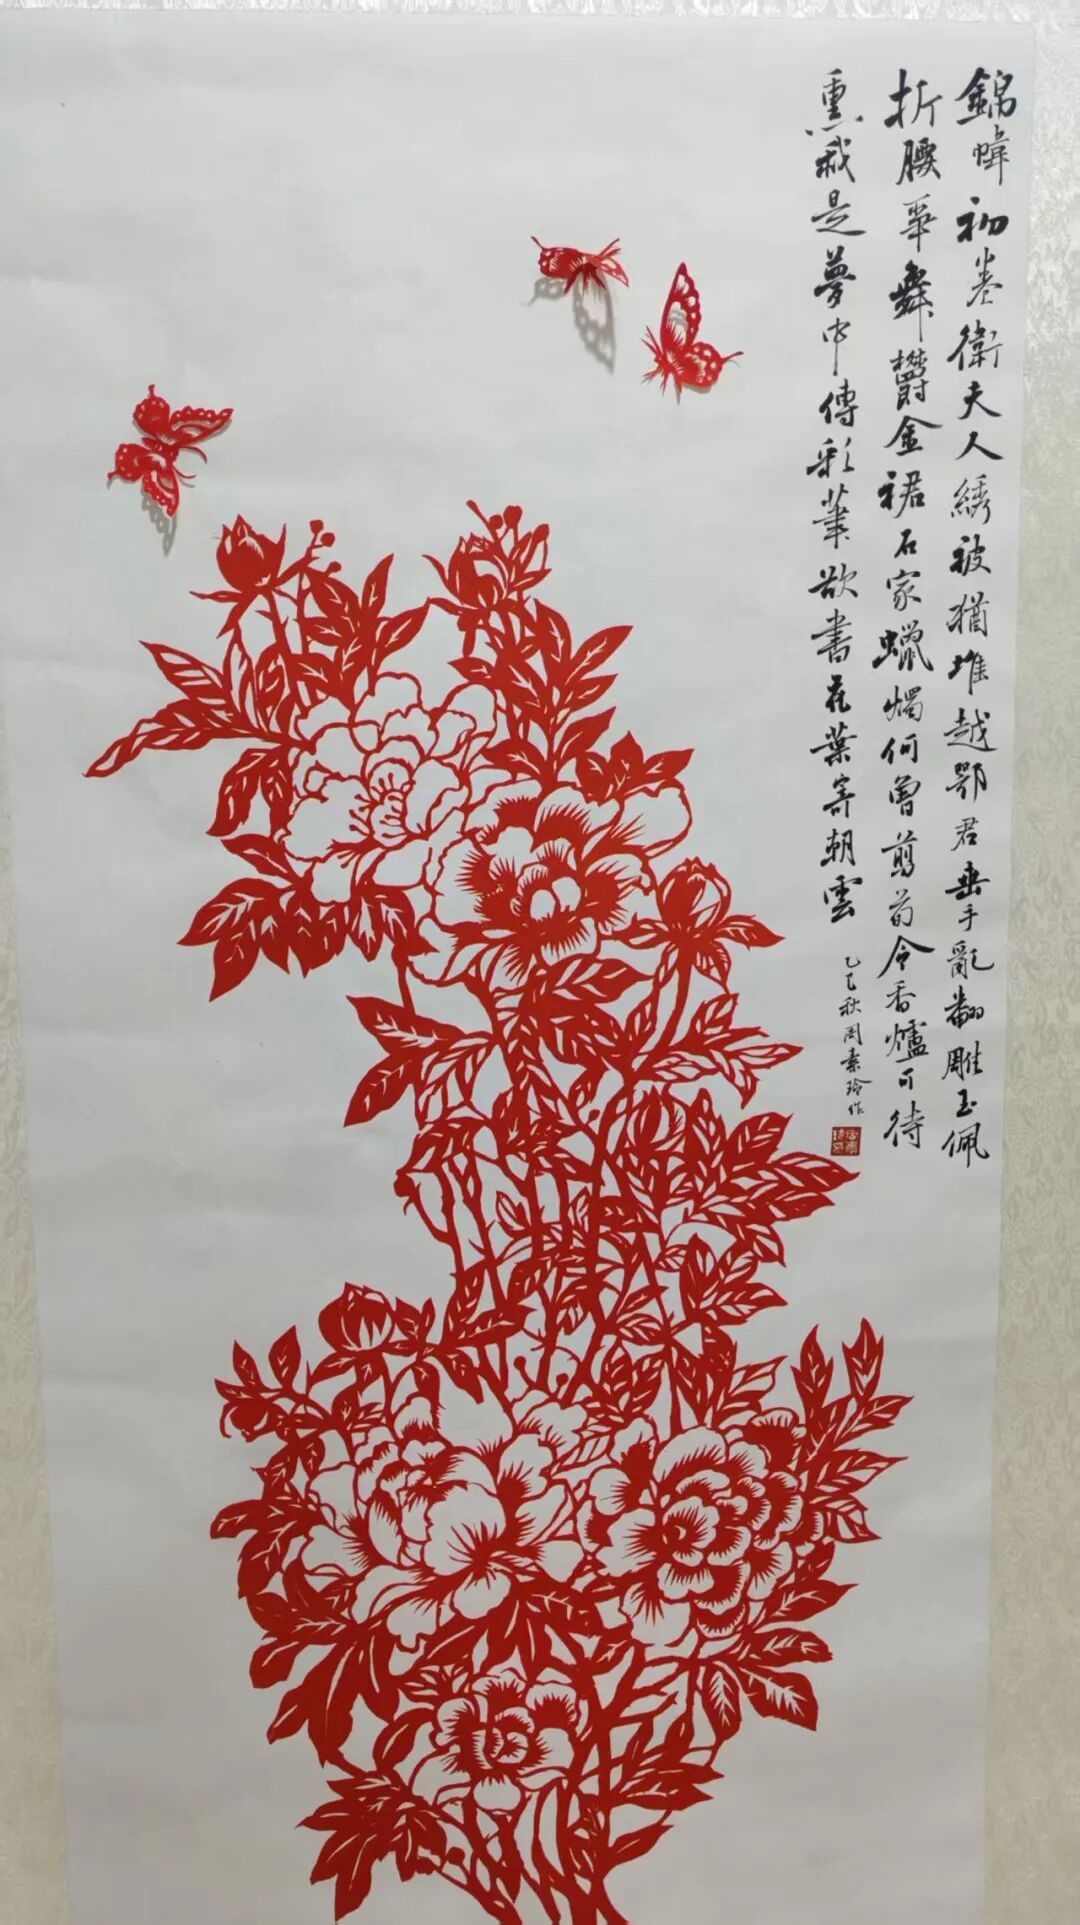 錦幃初卷衛夫人綉被猶堆越鄂君垂手亂翻雕玉佩
折腰爭舞欝金裙石家蠟燭何曾剪荀令香爐可待
熏我是夢中傳彩筆欲書花葉寄朝雲
乙巳秋周素玲作